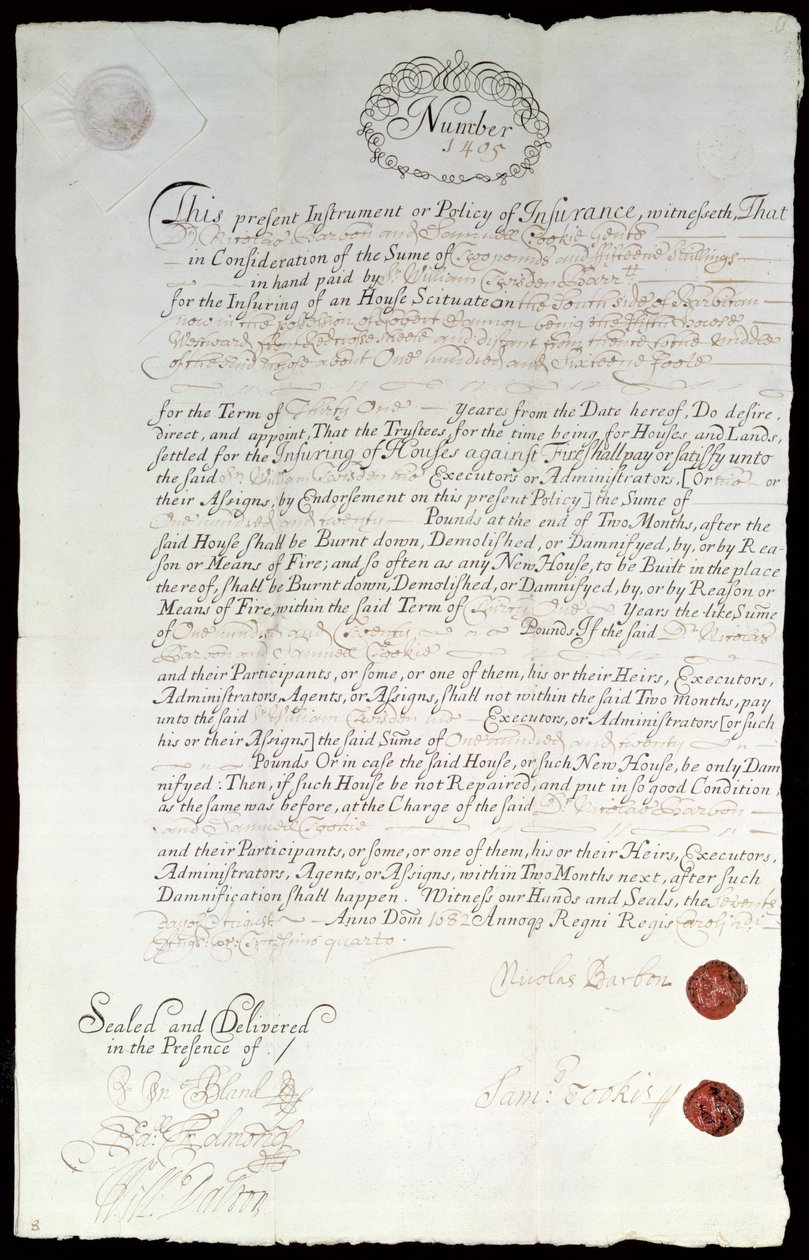 Number
1405
This present Instrument or Policy of Insurance, witnesseth, That
Dr. Nicolas Barbon and Samuell Tookie Gents
in Consideration of the Sume of Two pounds and fifteene Shillings
in hand paid by Sr. William Twisden Barrtt
for the Insuring of an House Scituate on the South side of Barbican
now in the possession of Robert Hannon being the fifth house
Westward from Redcrosse streete and distant from thence to the middle
of the said house about One hundred and Sixteene foote
for the Term of Thirty One Yeares from the Date hereof, Do desire,
direct, and appoint, That the Trustees, for the time being, for Houses, and Lands,
settled for the Insuring of Houses against Fire shall pay or satisfy unto
the said Sr. William Twisden his Executors or Administrators, [Or his or
their Assigns, by Endorsement on this present Policy] the Sume of
One hundred and twenty Pounds at the end of Two Months, after the
said House shall be Burnt down, Demolished, or Damnifyed, by, or by Rea-
son or Means of Fire; and so often as any New House, to be Built in the place
thereof, shall be Burnt down, Demolished, or Damnifyed, by, or by Reason or
Means of Fire, within the said Term of Thirty One Years the like Sume
of One hundred and Twenty Pounds If the said Dr. Nicolas
Barbon and Samuell Tookie
and their Participants, or some, or one of them, his or their Heirs, Executors,
Administrators, Agents, or Assigns, shall not within the said Two Months, pay
unto the said Sr William Twisden his Executors, or Administrators [or such
his or their Assigns] the said Sume of One hundred and twenty
Pounds Or in case the said House, or such New House, be only Dam
nifyed: Then, if such House be not Repaired, and put in so good Condition,
as the same was before, at the Charge of the said Dr. Nicolas Barbon
and Samuell Tookie
and their Participants, or some, or one of them, his or their Heirs, Executors,
Administrators, Agents, or Assigns, within Two Months next, after such
Damnification shall happen. Witness our Hands and Seals, the Seventh
day of August Anno Dom 1682 Annoq3 Regni Regis Caroli 2di
quarto.
Nicolas Barbon
Sealed and Delivered
in the Presence of. /
Bland
Sam: Tookie
Edmonds
Will: Dalton
8